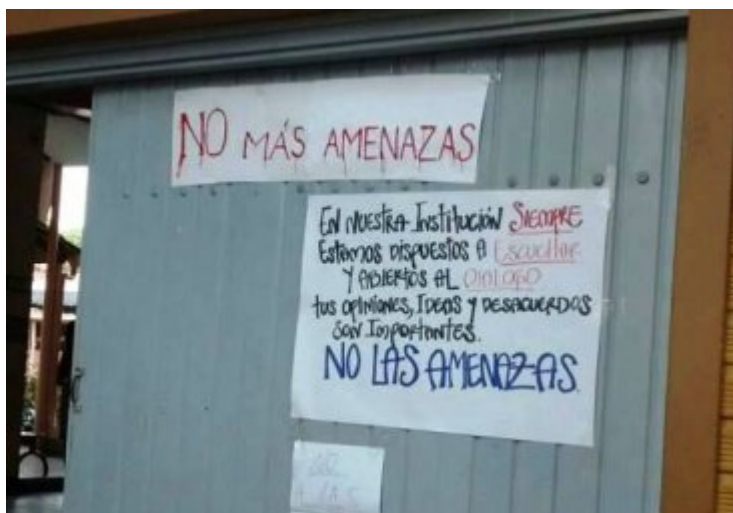 NO MÁS AMENAZAS
EN NUESTRA INSTITUCIÓN SIEMPRE
ESTAMOS DISPUESTOS A ESCUCHAR
Y ABIERTOS AL DIALOGO
tus OPINIONES, IDEAS Y DESACUERDOS
SON IMPORTANTES.
NO LAS AMENAZAS.
A LAS